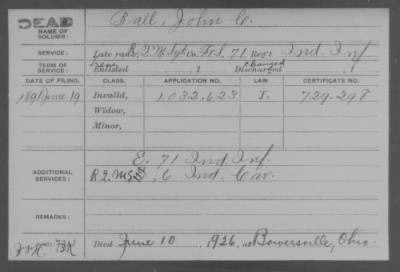 DEAD
NAME OF SOLDIER:
Ball, John C.
SERVICE:
Late rank, R.2.M.Sgt Co. F&S, 71 Reg't Ind. Inf.
TERM OF SERVICE:
Enlisted , 1
Changed
Discharged , 1
DATE OF FILING. CLASS. APPLICATION NO. LAW. CERTIFICATE NO.
1891 June 19 Invalid, 1.032.623 J. 729.298
Widow,
Minor,
E. 71 Ind. Inf.
ADDITIONAL SERVICES:
R.2.M.S. , 6 Ind. Cav.
REMARKS:
Died June 10, 1926, at Bowersville, Ohio.